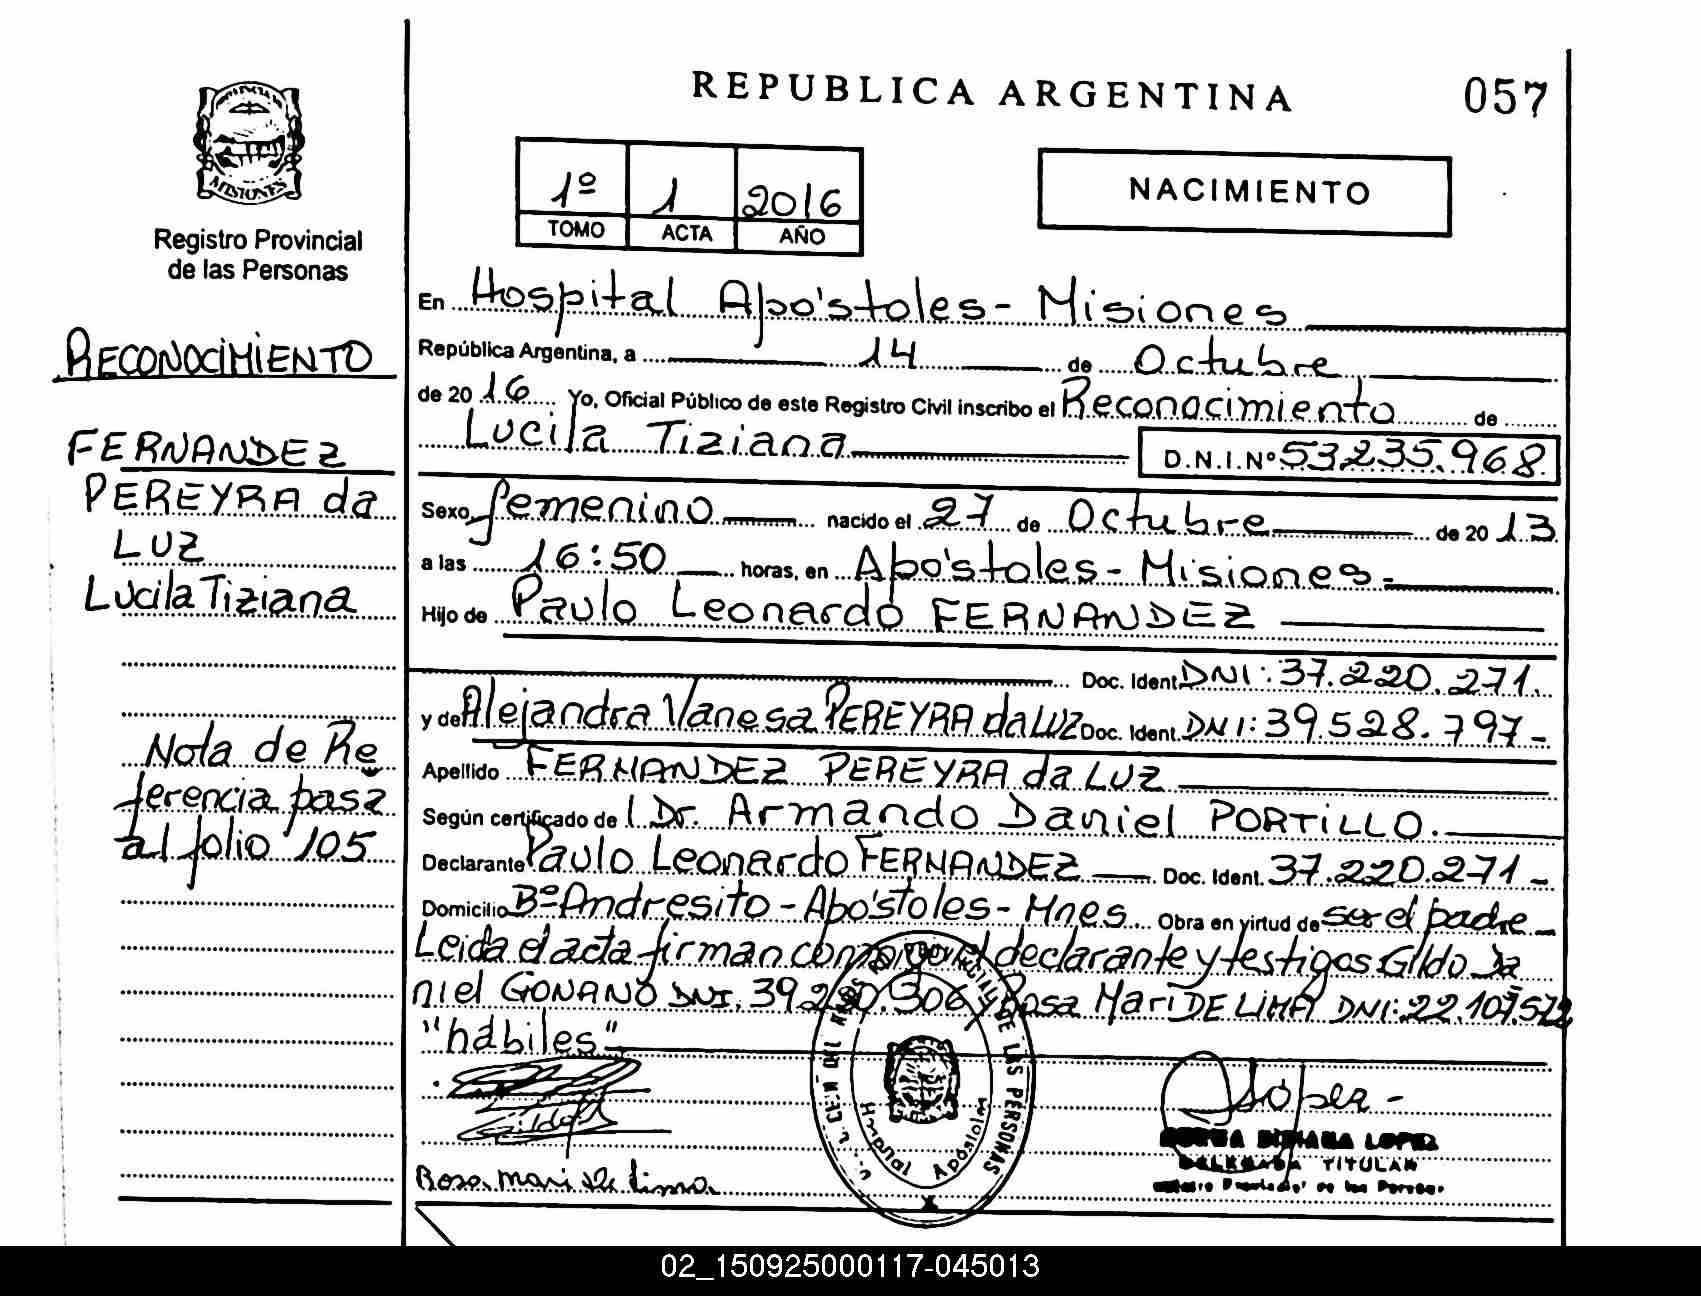 REPUBLICA ARGENTINA
057
MISIONES
Registro Provincial
de las Personas
1º 1 2016
TOMO ACTA AÑO
NACIMIENTO
RECONOCIMIENTO
FERNANDEZ
PEREYRA da
LUZ
Lucila Tiziana
Nota de Re
ferencia pasa
al folio 105
En Hospital Apóstoles - Misiones
República Argentina, a 14 de Octubre
de 2016 Yo, Oficial Público de este Registro Civil inscribo el Reconocimiento de
Lucila Tiziana D.N.I.Nº 53235.968
Sexo femenino nacido el 27 de Octubre de 2013
a las 16:50 horas, en Apóstoles - Misiones -
Hijo de Paulo Leonardo FERNANDEZ
Doc. Ident. DNI: 37.220.271.
y de Alejandra Vanesa PEREYRA da LUZ Doc. Ident. DNI: 39.528.797 -
Apellido FERNANDEZ PEREYRA da LUZ
Según certificado de Dr. Armando Daniel PORTILLO.
Declarante Paulo Leonardo FERNANDEZ Doc. Ident. 37.220.271 -
Domicilio Bº Andresito - Apóstoles - Mnes Obra en virtud de ser el padre
Leida el acta firman conmigo el declarante y testigos Gildo Da
niel GONANO DNI. 39.220.306 y Rosa Mari DE LIMA DNI: 22.107.572
"hábiles"
DE LAS PERSONAS
López -
LOPEZ
DELEGADA TITULAR
Rosa Mari de Lima
02_150925000117-045013